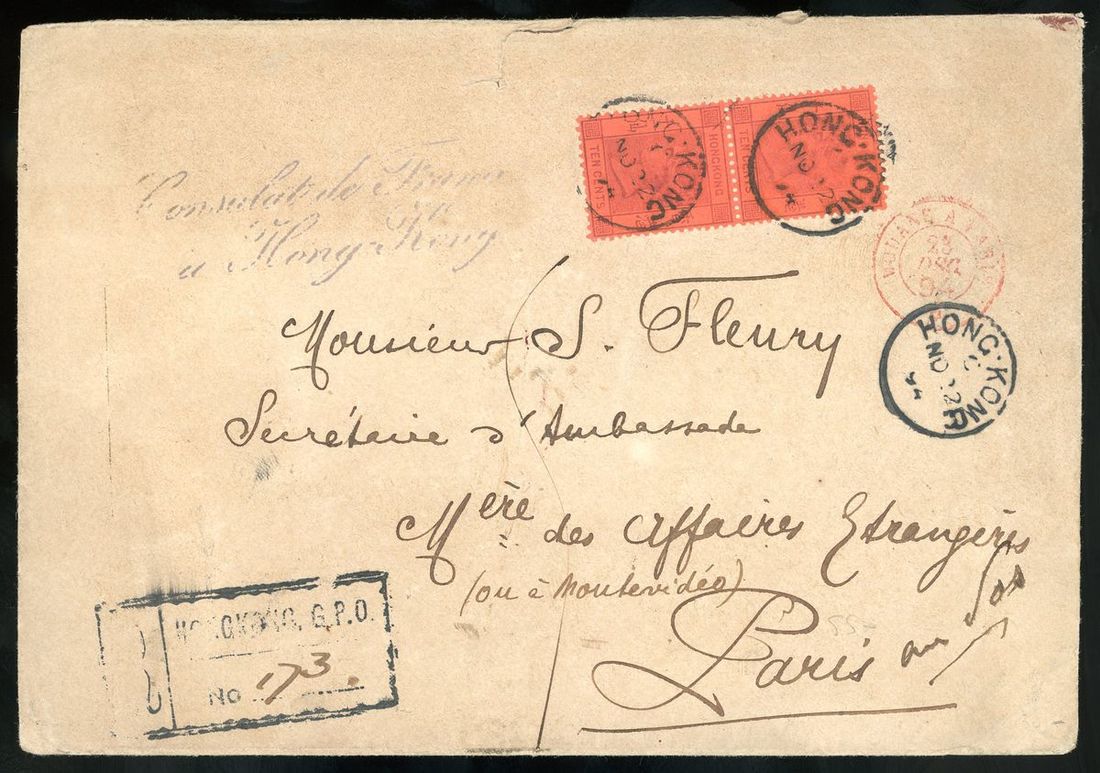 Consulat de France
à Hong-Kong
TEN CENTS
HONGKONG
TEN CENTS
HONG·KONG
NO 22
94
HONG·KONG
NO 22
94
23
DEC
94
HONG·KONG
C
NO 22
94
R
Monsieur S. Fleury
Secrétaire d'Ambassade
Mère des Affaires Etrangères
(ou à Montevidéo)
Paris
HONGKONG. G.P.O.
No 173.